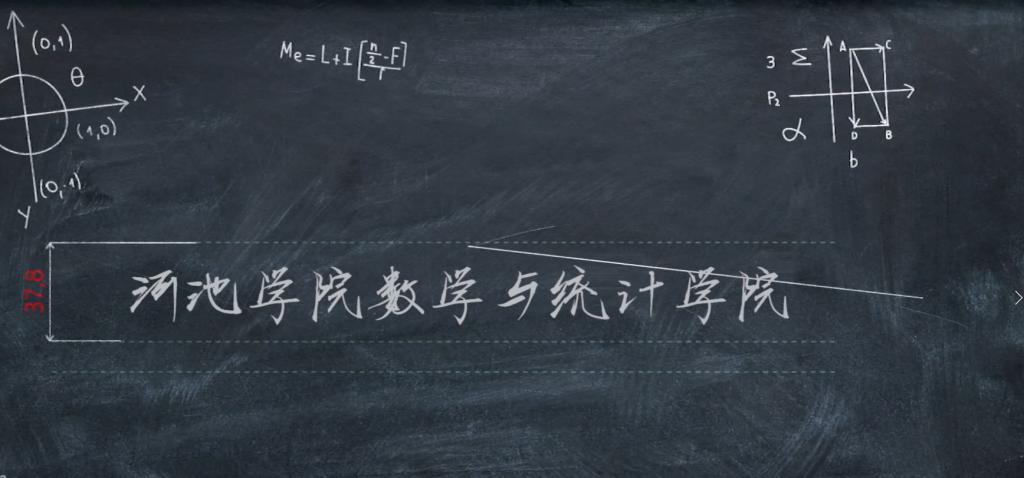 (0,1)
θ
X
(1,0)
(0,-1)
Y
Me=L+I[(n/2-F)/r]
3 Σ
P₂
α
A C
D B
b
37,8
河池学院数学与统计学院